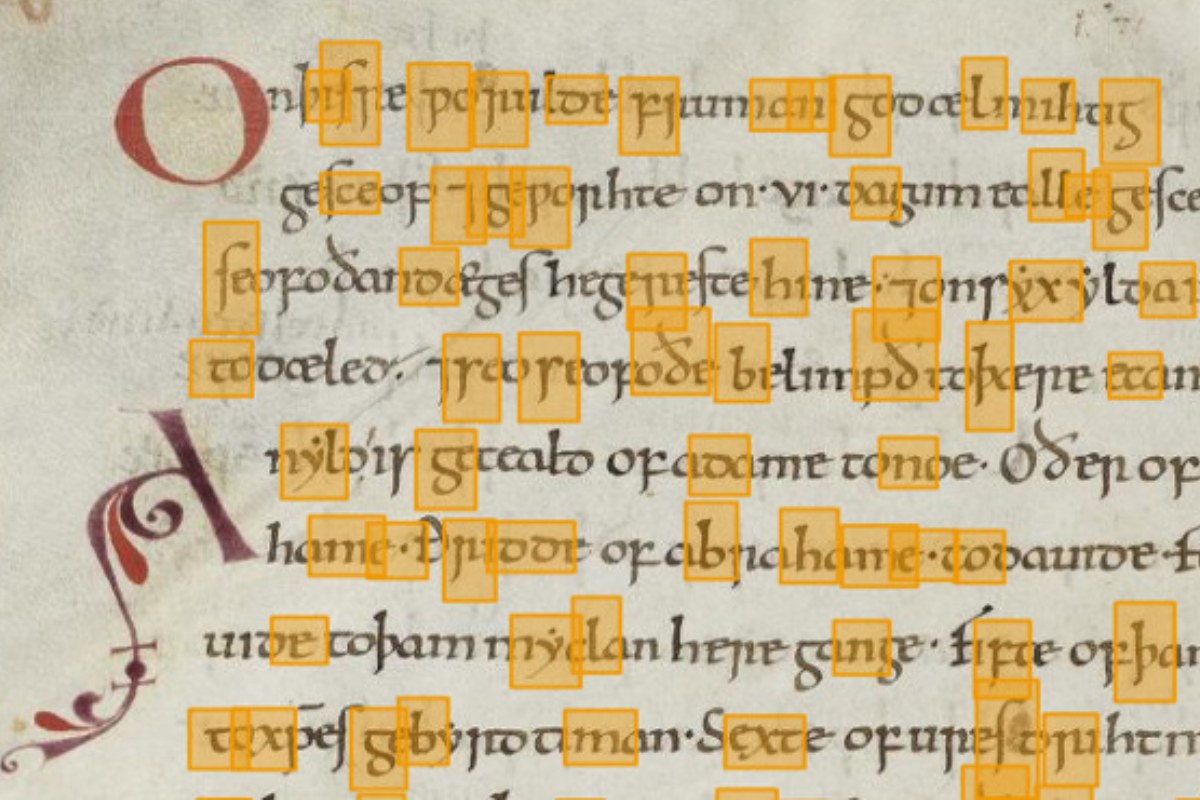 On þisre worulde fruman god ælmihtig
gesceop ⁊ geworhte on · vi · dagum ealle gesce
seofoðan dæges he gereste hine · ⁊ on syx ylda
todæled. ⁊ seo seofoðe belimpð to þære ecan
n yld is geteald of adame to noe · Oðer of
hame · Ðridde of abrahame · to dauide · f
uide to þam myclan heregange · Fifte of þa
to xp̄es gebyrdtiman · Sexte of ures drihtn